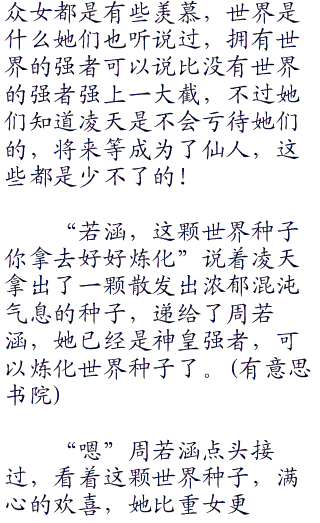 众女都是有些羡慕，世界是
什么她们也听说过，拥有世
界的强者可以说比没有世界
的强者强上一大截，不过她
们知道凌天是不会亏待她们
的，将来等成为了仙人，这
些都是少不了的！
“若涵，这颗世界种子
你拿去好好炼化”说着凌天
拿出了一颗散发出浓郁混沌
气息的种子，递给了周若
涵，她已经是神皇强者，可
以炼化世界种子了。(有意思
书院)
“嗯”周若涵点头接
过，看着这颗世界种子，满
心的欢喜，她比重女更